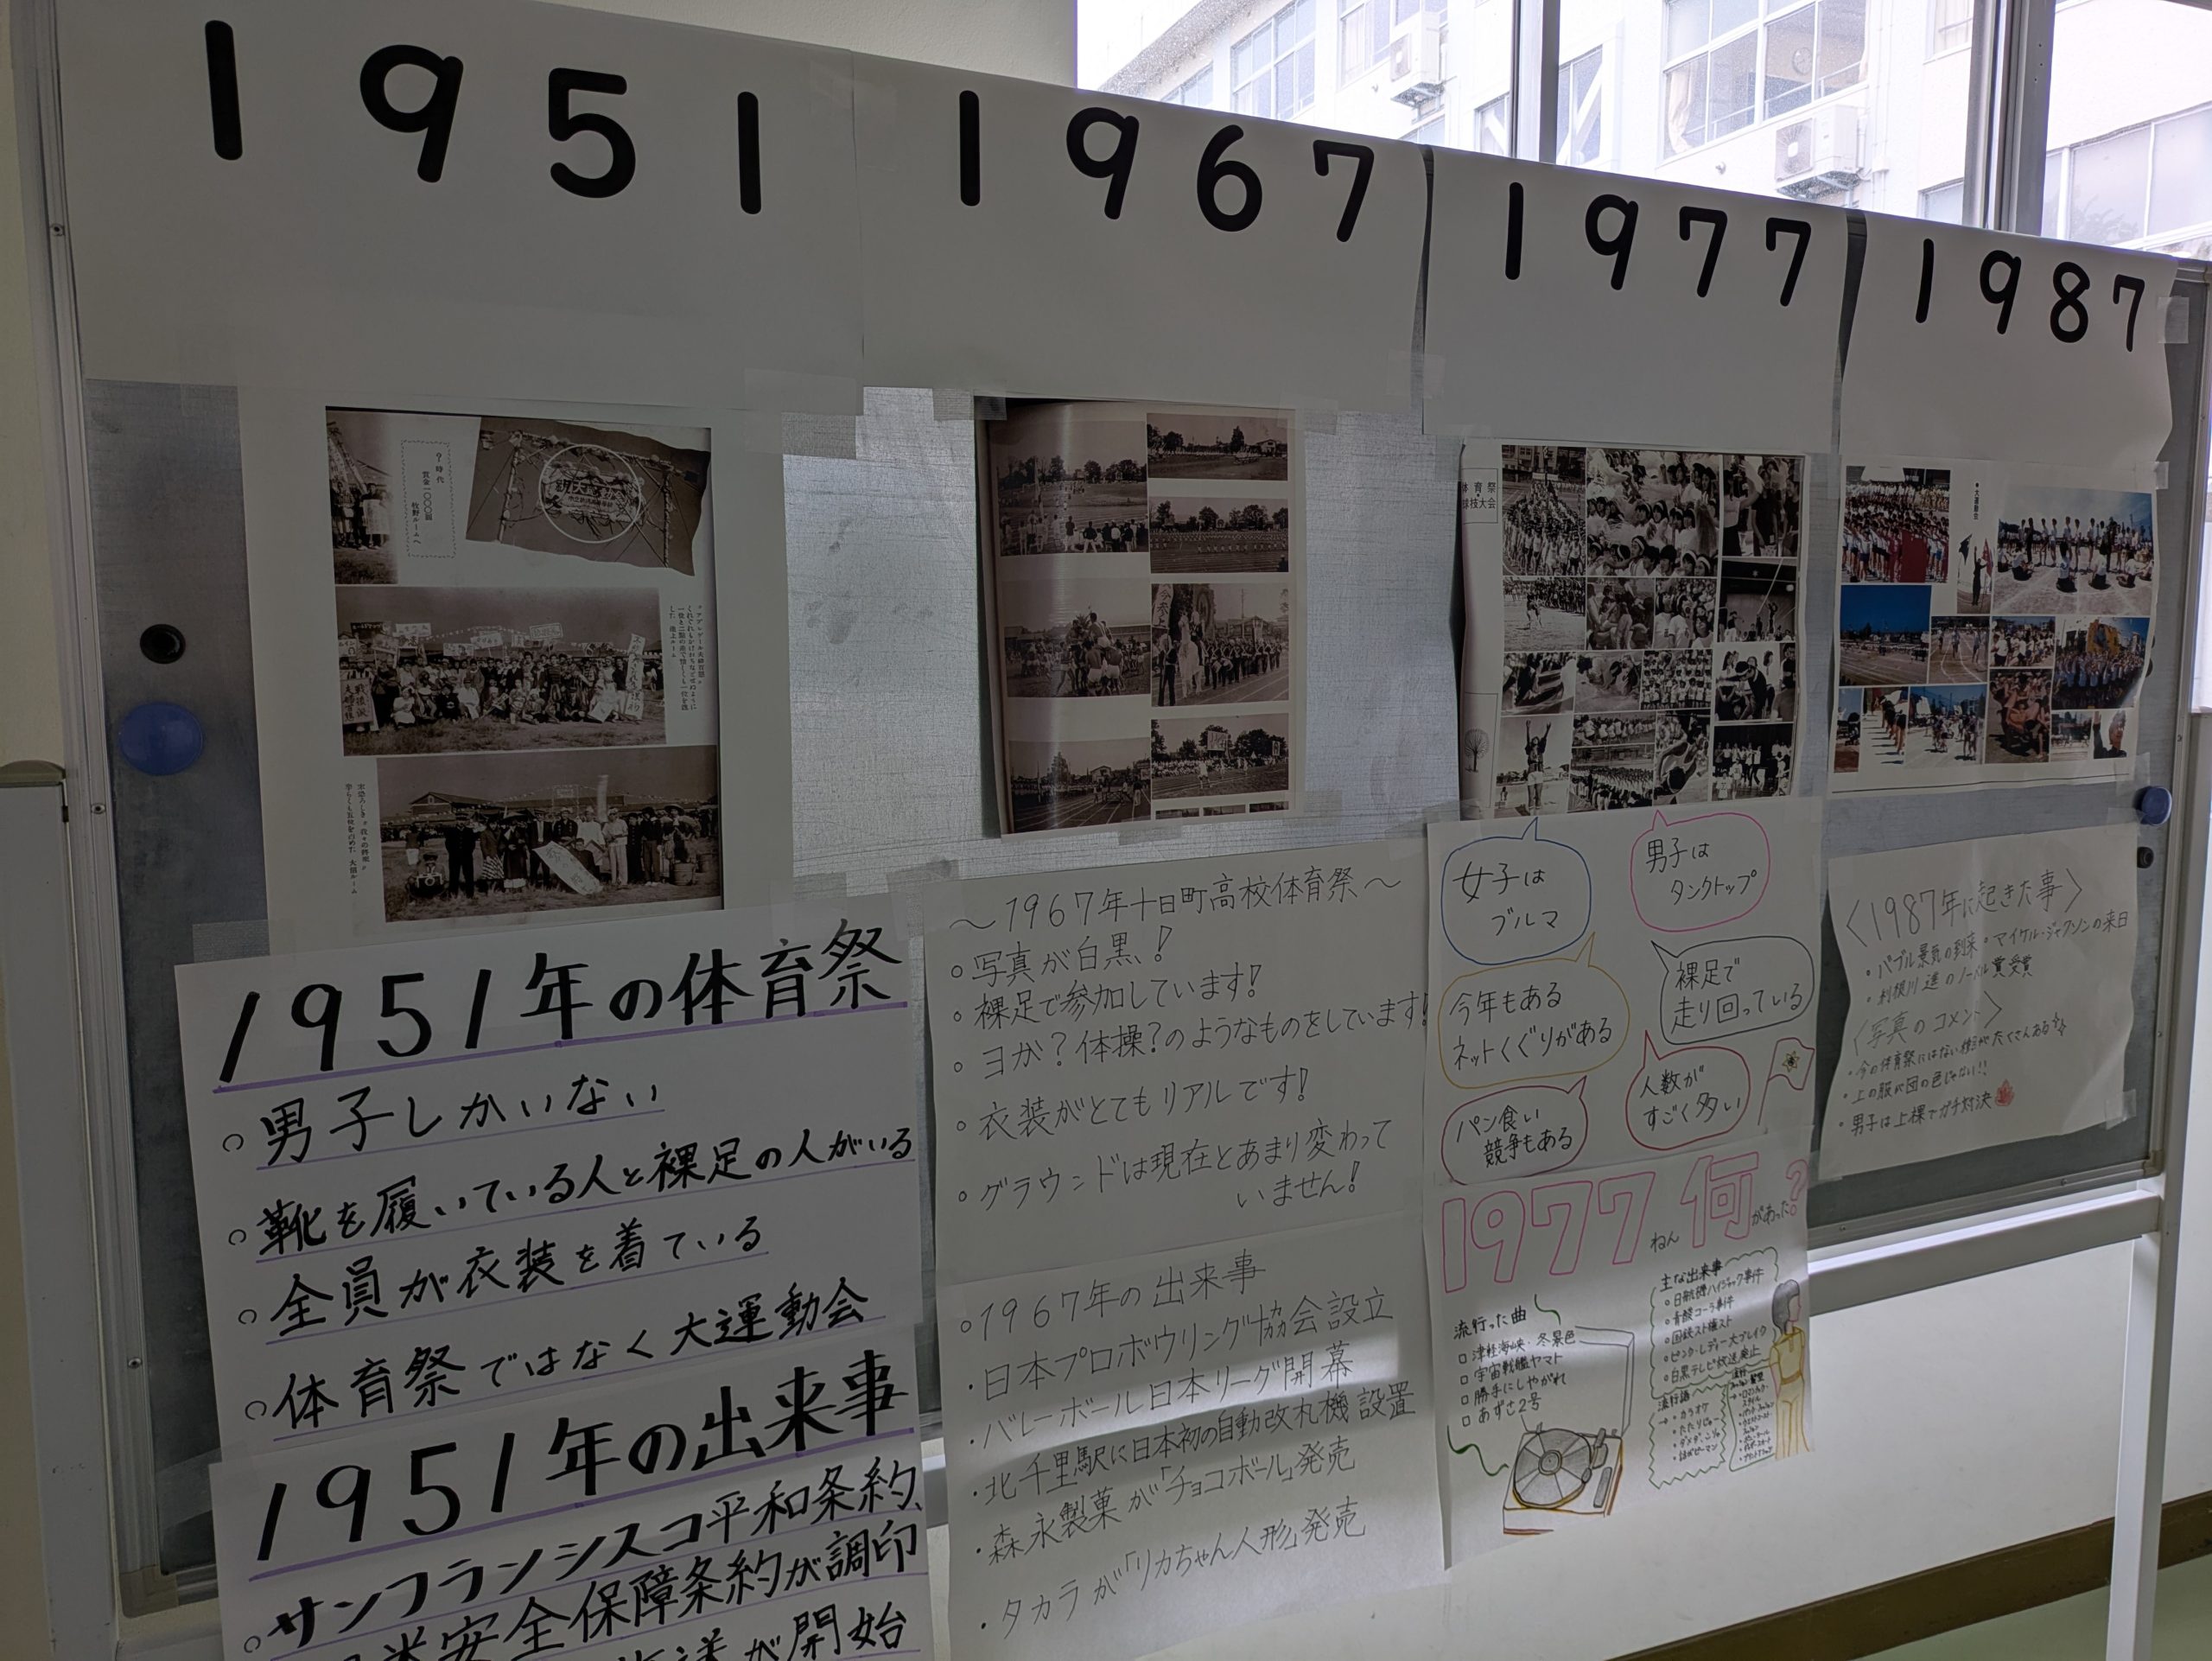 1951
1967
1977
1987
？時代
賞金一〇〇圓
牧野ルームへ
体育祭
球技大会
大運動会
1951年の体育祭
○男子しかいない
○靴を履いている人と裸足の人がいる
○全員が衣装を着ている
○体育祭ではなく大運動会
1951年の出来事
○サンフランシスコ平和条約、
米安全保障条約が調印
放送が開始
～1967年十日町高校体育祭～
○写真が白黒！
○裸足で参加しています！
○ヨガ？体操？のようなものをしています！
○衣装がとてもリアルです！
○グラウンドは現在とあまり変わって
いません！
○1967年の出来事
・日本プロボウリング協会設立
・バレーボール日本リーグ開幕
・北千里駅に日本初の自動改札機設置
・森永製菓が「チョコボール」発売
・タカラが「リカちゃん人形」発売
女子は
ブルマ
男子は
タンクトップ
今年もある
ネットくぐりがある
裸足で
走り回っている
パン食い
競争もある
人数が
すごく多い
1977ねん何があった？
流行った曲
□津軽海峡・冬景色
□宇宙戦艦ヤマト
□勝手にしやがれ
□あずさ2号
主な出来事
○日航機ハイジャック事件
○青酸コーラ事件
○国鉄スト権スト
○ピンク・レディー大ブレイク
○白黒テレビ放送廃止
流行語
・カラオケ
・たたりじゃー
・話がピーマン
〈1987年に起きた事〉
・バブル景気の到来・マイケル・ジャクソンの来日
・利根川進のノーベル賞受賞
〈写真のコメント〉
・今の体育祭にはない種目がたくさんある
・上の服が団の色じゃない!!
・男子は上裸でガチ対決